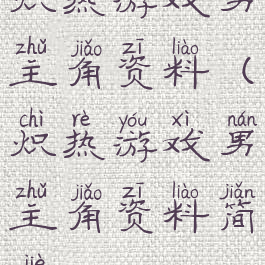 炽热游戏男
zhǔ jiǎo zī liào
主角资料（
chì rè yóu xì nán
炽热游戏男
zhǔ jiǎo zī liào jiǎn
主角资料简
jiè